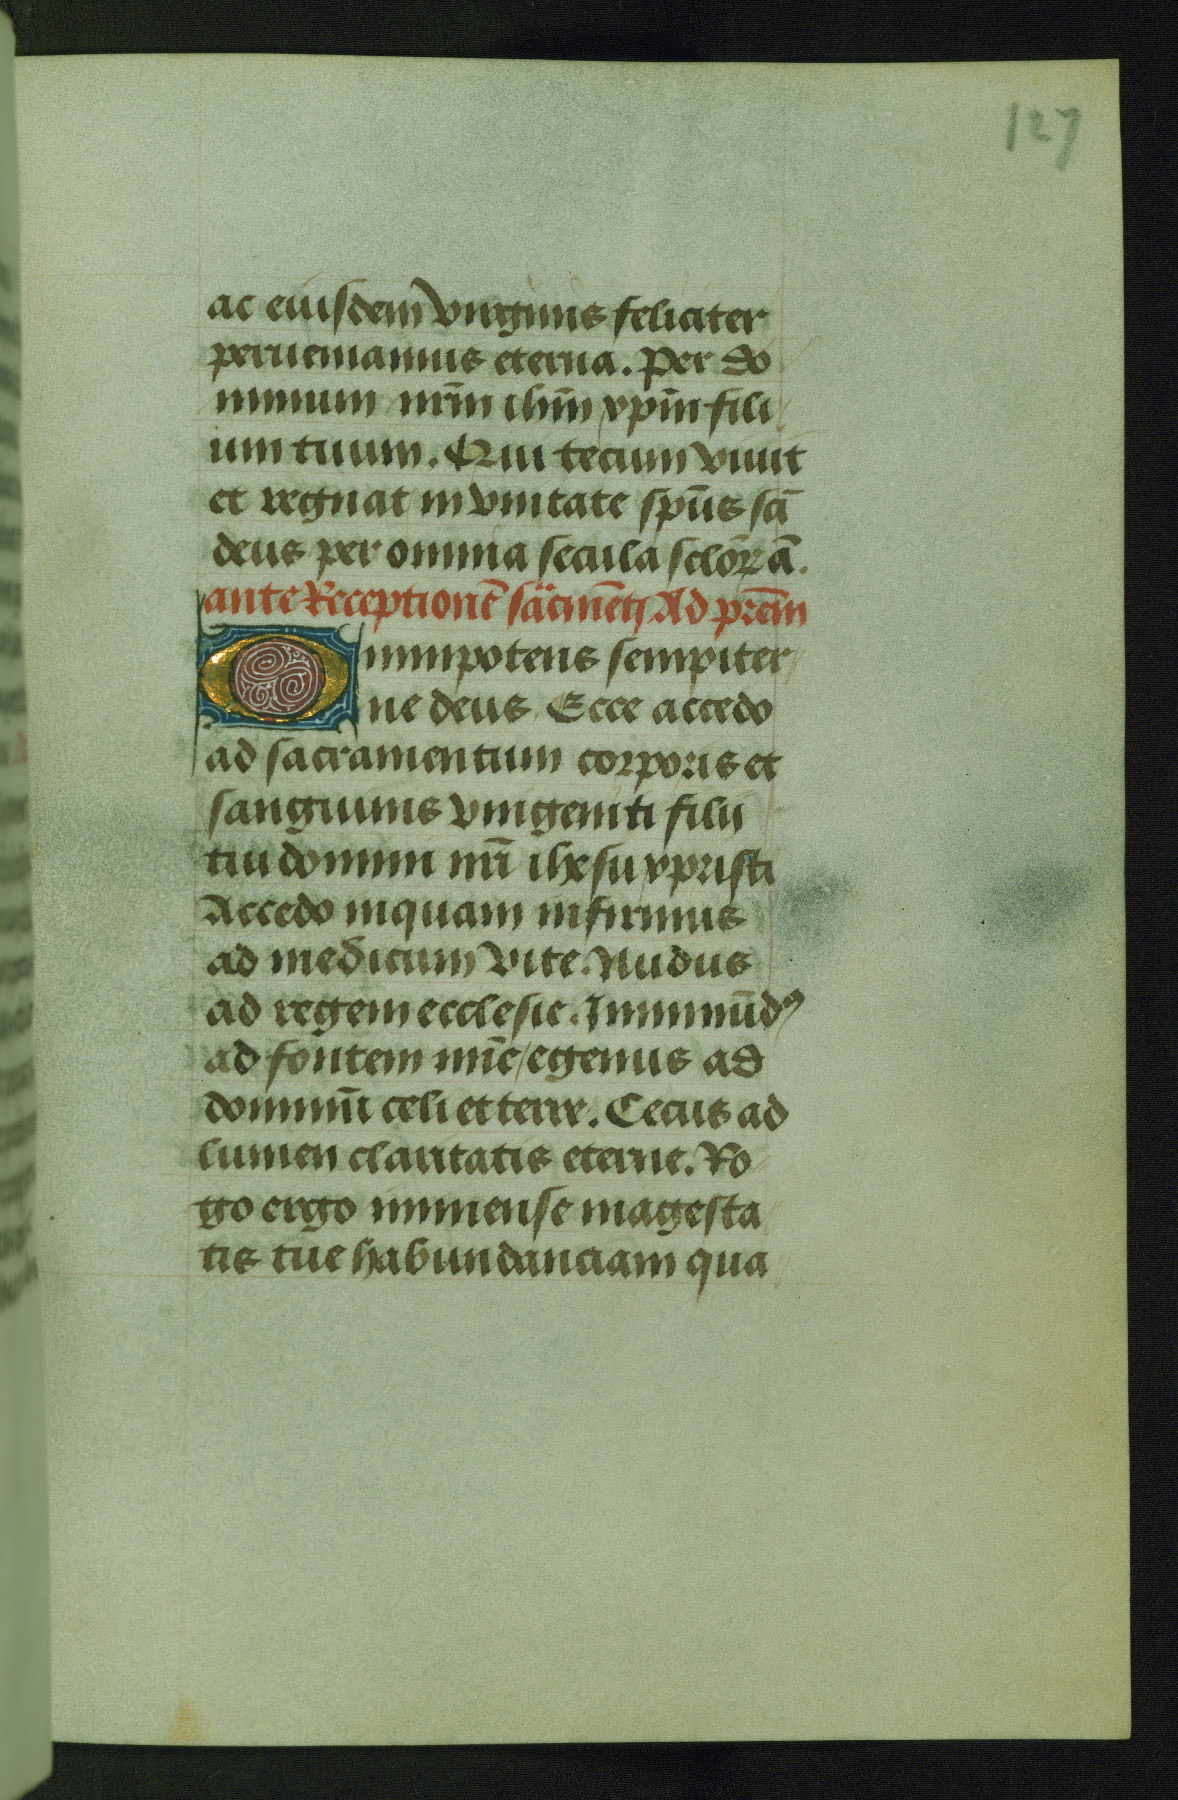 127
ac eiusdem virginis feliciter
perueniamus eterna. Per do
minum nr̄m ihm̄ xpm̄ fili
um tuum. Qui tecum viuit
et regnat in vnitate spūs sc̄i
deus per omnia secula sclōꝝ a̅.
ante Receptionē sācm̄eti Ad prēm
Omnipotens sempiter
ne deus Ecce accedo
ad sacramentum corporis et
sanguinis vnigeniti filii
tui domini nr̄i ihesu xpristi
Accedo inquam infirmus
ad medicum vite. Nudus
ad regem ecclesie. Inmūdꝰ
ad fontem mīe/egenus ad
dominū celi et terre. Cecus ad
lumen claritatis eterne. Ro
go ergo immense magesta
tis tue habundanciam qua